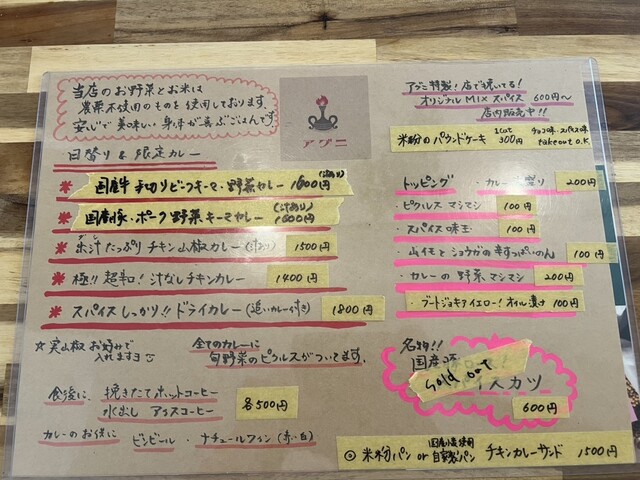 当店のお野菜とお米は
農薬不使用のものを使用しております。
安心で美味しい身体が喜ぶごはんです
アグニ
日替り & 限定カレー
※ 国産牛 手切りビーフキーマ・野菜カレー (汁あり) 1600円
※ 国産豚・ポーク野菜キーマカレー (汁あり) 1600円
※ 出汁たっぷり チキン山椒カレー (汁あり) 1500円
※ 極!! 超辛! 汁なしチキンカレー 1400円
※ スパイスしっかり!! ドライカレー (追いカレー付き) 1800円
☆ 実山椒 お好みで
入れますヨ
全てのカレーに
旬野菜のピクルスがついてます。
食後に、挽きたてホットコーヒー
水出し アイスコーヒー
各500円
カレーのお供に ビンビール・ナチュールワイン (赤・白)
アグニ特製! 店で焼いてる!
オリジナル MIX スパイス 600円〜
店内販売中!!
米粉のパウンドケーキ 1cut 300円 takeout O.K
トッピング ・カレー 200円
・ピクルス マシマシ 100円
・スパイス味玉 100円
・山イモとショウガの辛すっぱいのん 100円
・カレーの野菜マシマシ 200円
・ブートジョロキアイエロー! オイル漬け 100円
名物!!
国産豚
Sold out
イスカツ
600円
◎ 米粉パン or 国産小麦使用 自家製パン チキンカレーサンド 1500円